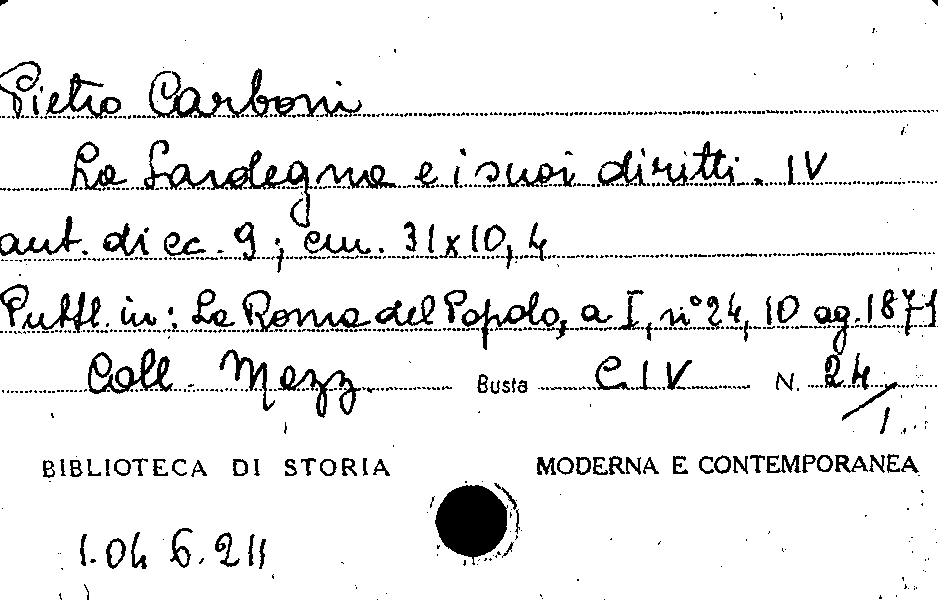 Pietro Carboni
La Sardegna e i suoi diritti. IV
aut. di cc. 9; cm. 31x10,4
Pubbl. in: La Roma del Popolo, a I, n° 24, 10 ag. 1871
Coll. Mazz. Busta C. IV N. 24/1
BIBLIOTECA DI STORIA MODERNA E CONTEMPORANEA
1.04 6.211